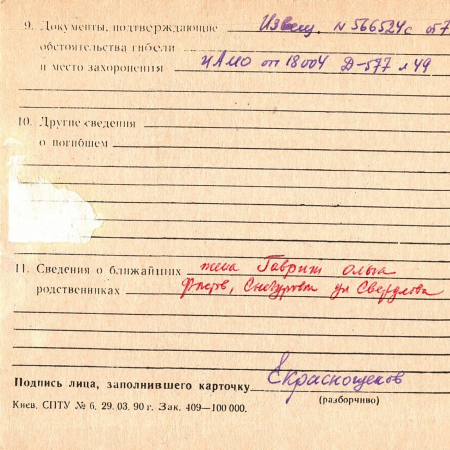 9. Документы, подтверждающие Извещ. N 566524с от 7
обстоятельства гибели
и место захоронения ЦАМО оп 18004 Д-577 л 49
10. Другие сведения
о погибшем
11. Сведения о ближайших жена Гавриш Ольга
родственниках Снегуровка ул Свердлова
Подпись лица, заполнившего карточку Екраснощеков
(разборчиво)
Киев, СПТУ № 6, 29. 03. 90 г. Зак. 409—100 000.